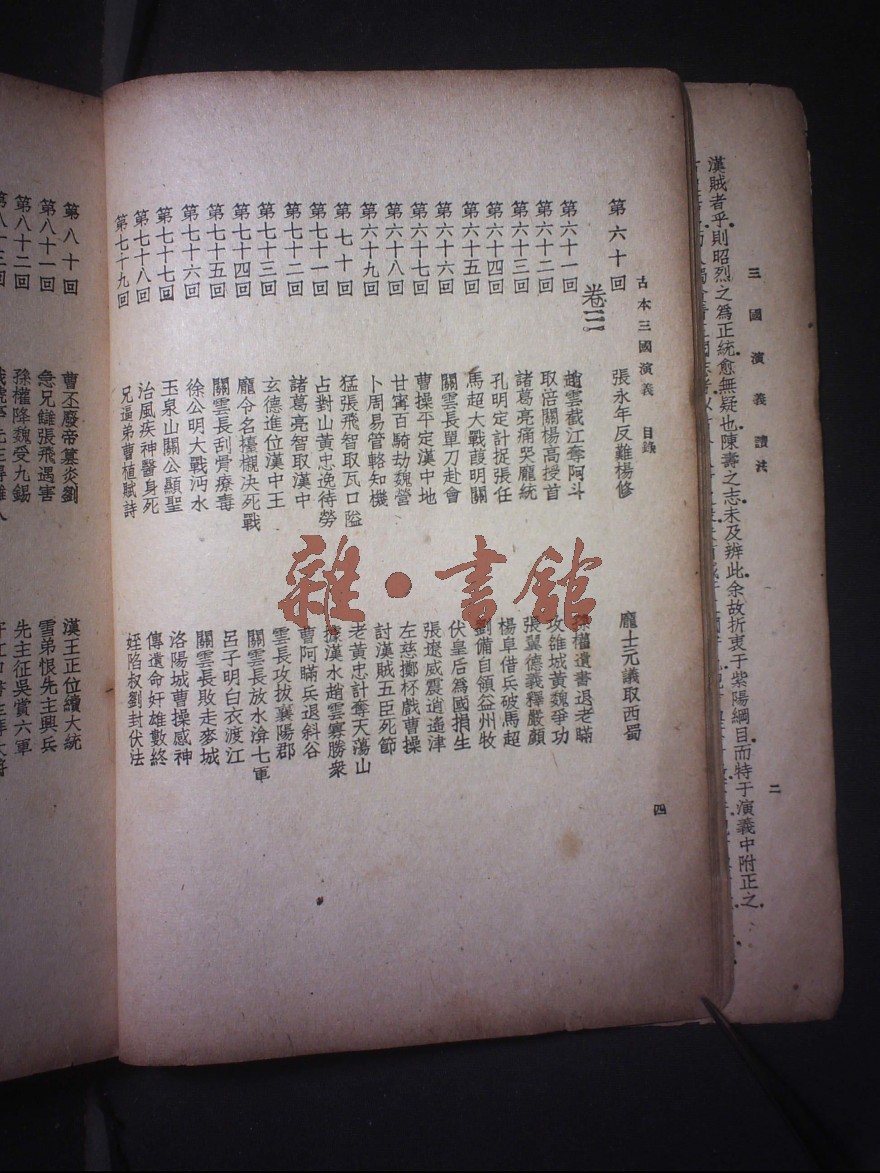 漢賊者乎則昭烈之爲正統愈無疑也陳壽之志未及辨此余故折衷于紫陽綱目而特于演義中附正之
三國演義讀法
二
古本三國演義 目錄
四
第六十回 張永年反難楊修 龐士元議取西蜀
卷三
第六十一回 趙雲截江奪阿斗 孫權遺書退老瞞
第六十二回 取涪關楊高授首 攻雒城黃魏爭功
第六十三回 諸葛亮痛哭龐統 張翼德義釋嚴顏
第六十四回 孔明定計捉張任 楊阜借兵破馬超
第六十五回 馬超大戰葭明關 劉備自領益州牧
第六十六回 關雲長單刀赴會 伏皇后爲國捐生
第六十七回 曹操平定漢中地 張遼威震逍遙津
第六十八回 甘寧百騎劫魏營 左慈擲杯戲曹操
第六十九回 卜周易管輅知機 討漢賊五臣死節
第七十回 猛張飛智取瓦口隘 老黃忠計奪天蕩山
第七十一回 占對山黃忠逸待勞 據漢水趙雲寡勝衆
第七十二回 諸葛亮智取漢中 曹阿瞞兵退斜谷
第七十三回 玄德進位漢中王 雲長攻拔襄陽郡
第七十四回 龐令名擡櫬決死戰 關雲長放水渰七軍
第七十五回 關雲長刮骨療毒 呂子明白衣渡江
第七十六回 徐公明大戰沔水 關雲長敗走麥城
第七十七回 玉泉山關公顯聖 洛陽城曹操感神
第七十八回 治風疾神醫身死 傳遺命奸雄數終
第七十九回 兄逼弟曹植賦詩 姪陷叔劉封伏法
第八十回 曹丕廢帝篡炎劉 漢王正位續大統
第八十一回 急兄讎張飛遇害 雪弟恨先主興兵
第八十二回 孫權降魏受九錫 先主征吳賞六軍
第八十三回
雜·書館